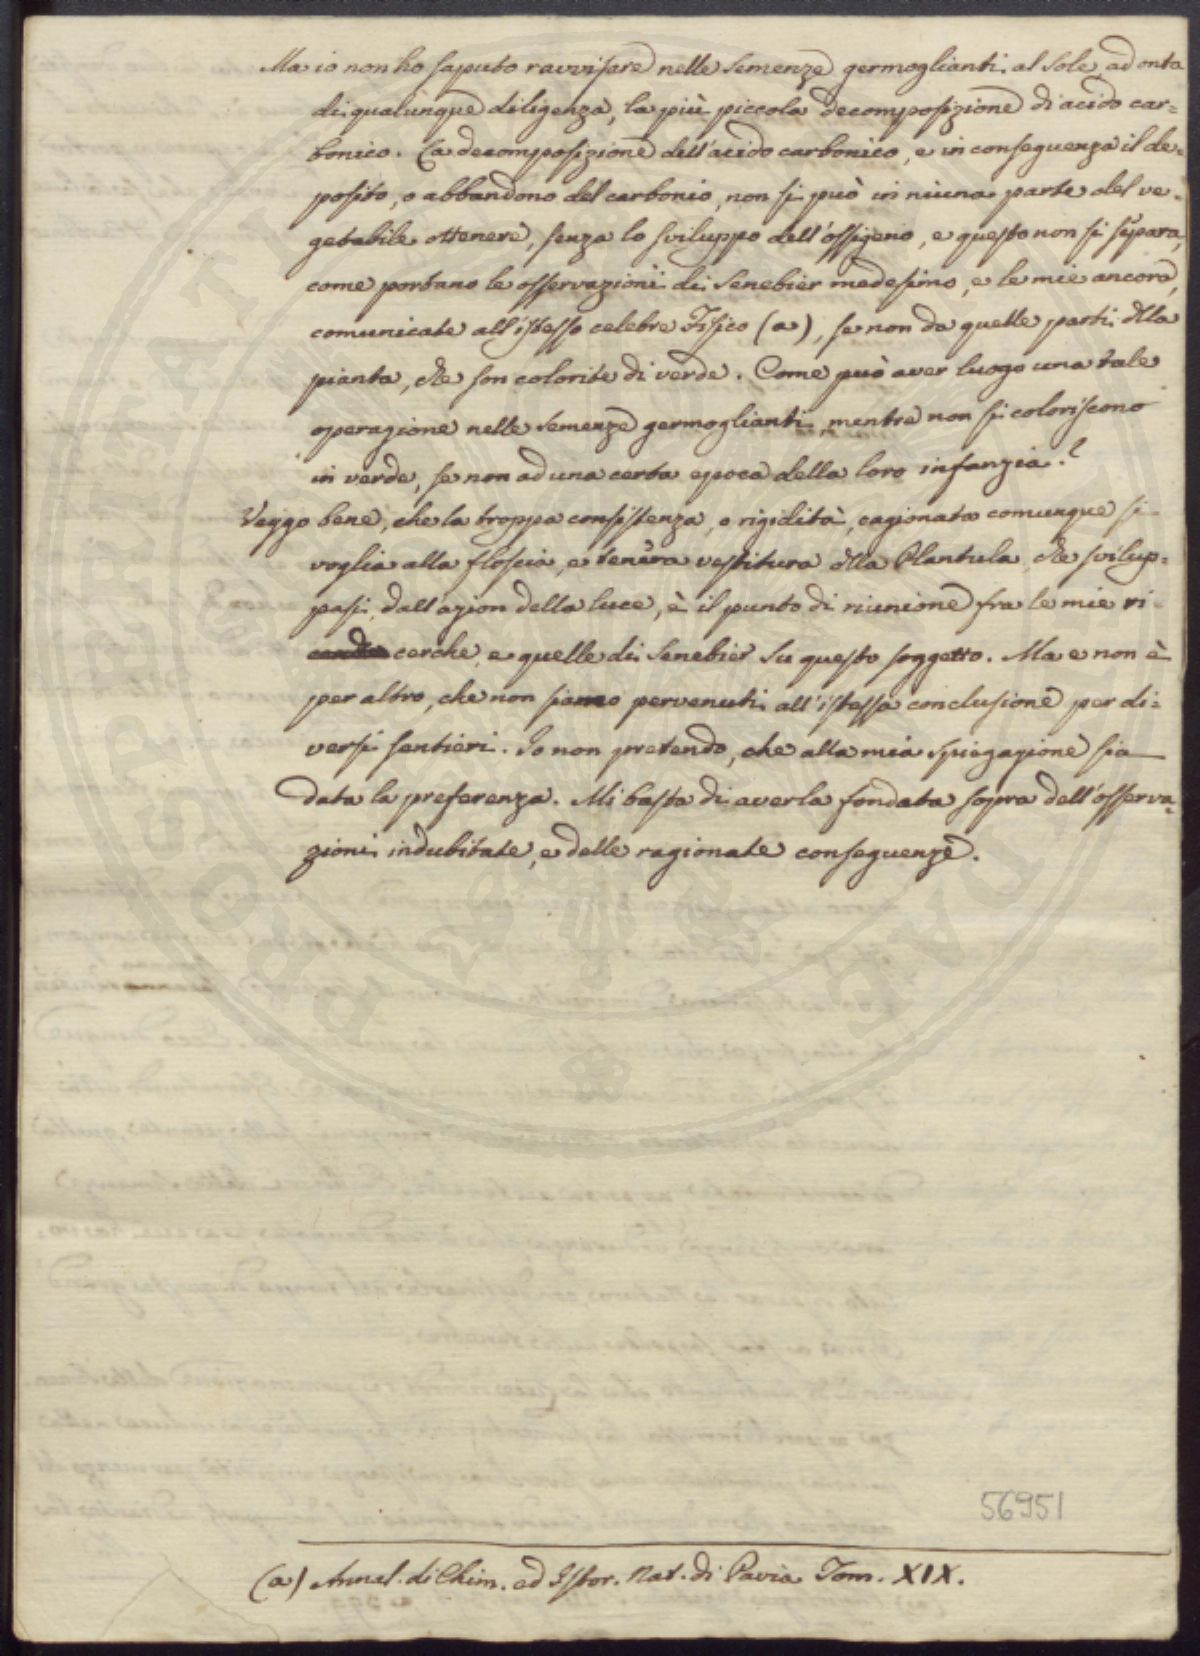 Ma io non ho saputo ravvisare nelle semenze germoglianti al Sole, ad onta
di qualunque diligenza, la più piccola decomposizione di acido car=
bonico. La decomposizione dell'acido carbonico, e in conseguenza il de=
posito, o abbandono del carbonio, non si può in niuna parte del ve=
getabile ottenere, senza lo sviluppo dell'ossigeno, e questo non si separa,
come portano le osservazioni di Senebier medesimo, e le mie ancora,
comunicate all'istesso celebre Fisico (a), se non da quelle parti dlla
pianta, che son colorite di verde. Come può aver luogo una tale
operazione nelle semenze germoglianti, mentre non si coloriscono
in verde, se non ad una certa epoca della loro infanzia?
Veggo bene, che la troppa consistenza, o rigidità, cagionata comunque si
voglia alla floscia, e tenera vestitura dlla Plantula che svilup=
pasi, dall'azion della luce, è il punto di riunione fra le mie ri=
cerche, e quelle di Senebier su questo soggetto. Ma e non è
per altro, che non siamo pervenuti all'istessa conclusione per di=
versi sentieri. Io non pretendo, che alla mia spiegazione sia
data la preferenza. Mi basta di averla fondata sopra dell'osserva=
zioni indubitate, e delle ragionate conseguenze.
56951
(a) Annal. di Chim. ed Istor. Nat. di Pavia Tom. XIX.